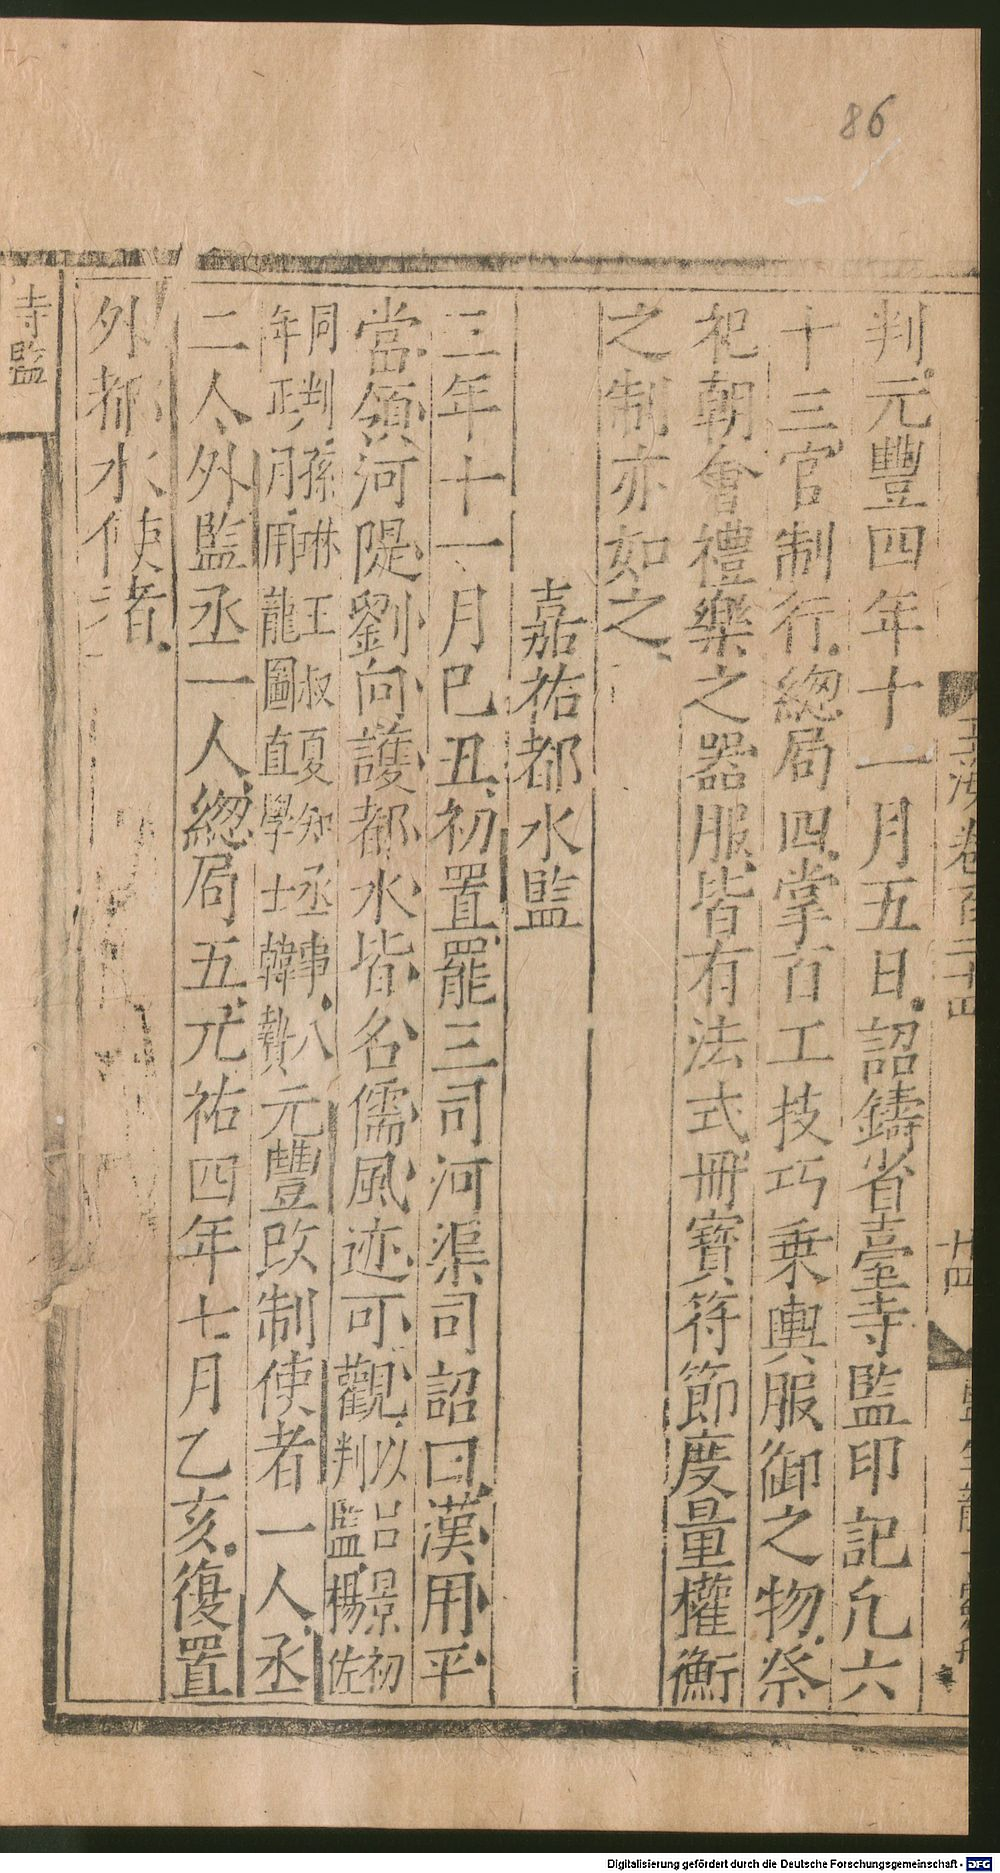 86
判元豐四年十一月五日詔鑄省臺寺監印記凢六
十三官制行總局四掌百工技巧乗輿服御之物祭
祀朝會禮樂之器服皆有法式冊寶符節度量權衡
之制亦如之
嘉祐都水監
三年十一月巳丑初置罷三司河渠司詔曰漢用平
當領河隄劉向護都水皆名儒風迹可觀以吕景初
判監楊佐
同判孫琳王叔夏知丞事八
年正月用龍圖直學士韓贄元豐改制使者一人丞
二人外監丞一人總局五元祐四年七月乙亥復置
外都水使者
寺監
玉海卷百二十四
廿四
Digitalisierung gefördert durch die Deutsche Forschungsgemeinschaft - DFG